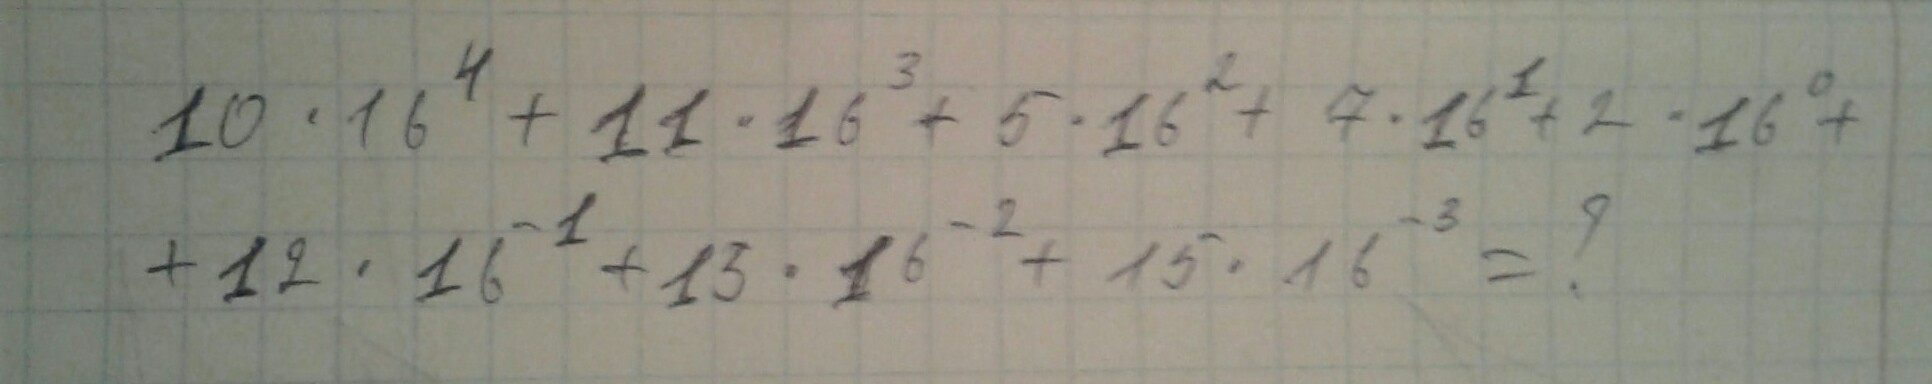 10 · 16⁴ + 11 · 16³ + 5 · 16² + 7 · 16¹ + 2 · 16⁰ +
+ 12 · 16⁻¹ + 13 · 16⁻² + 15 · 16⁻³ = ?